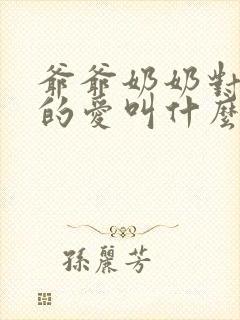 爺爺奶奶對
的愛叫什麼
孫麗芳